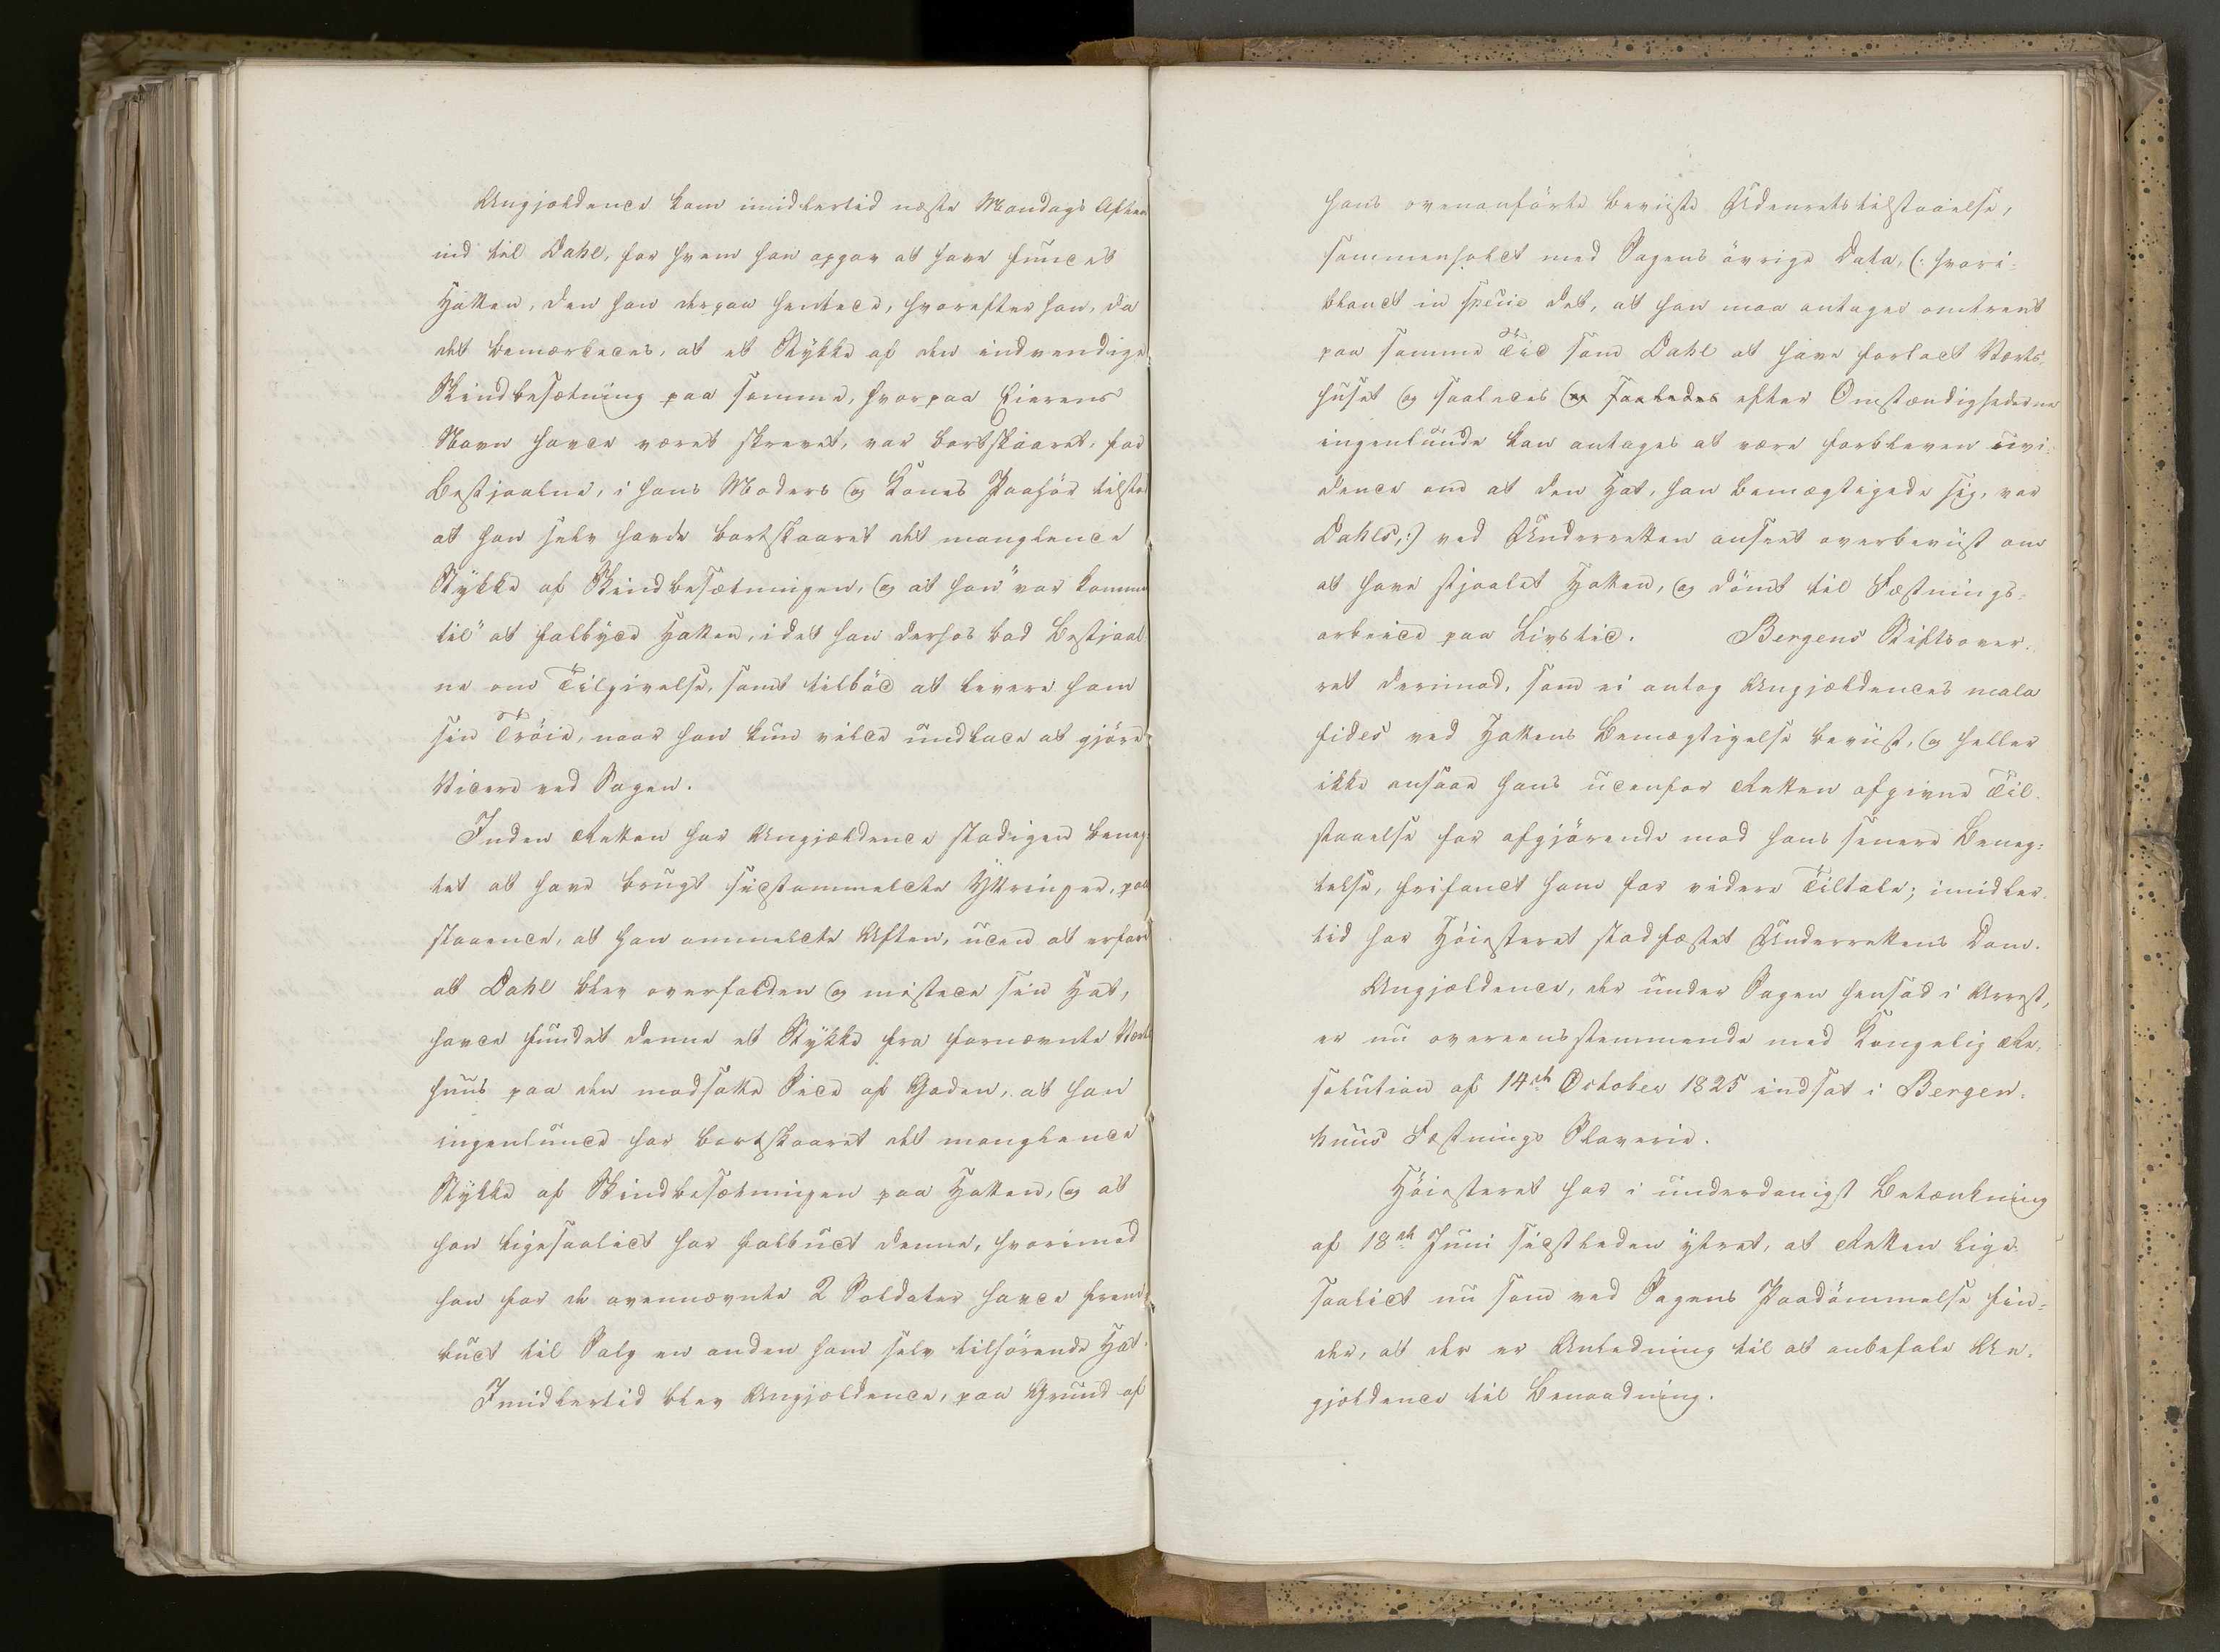 Angjældende kom imidlertid næste Mandags Aften
ind til Dahl, for hvem han opgav at have fundet
Hatten, den han derpaa hentede, hvorefter han, da
det bemærkedes, at et Stykke af den indvendige
Skindbesætning paa samme, hvorpaa Eierens
Navn havde været skrevet, var bortskaaret, for
Bestjaalne, i hans Moders og Kones Paahør tilstod
at han selv havde bortskaaret det manglende
Stykke af Skindbesætningen, og at han "var kommen
til" at falbyde Hatten, idet han derhos bad Bestjaal-
ne om Tilgivelse, samt tilböd at levere ham
sin Tröie, naar han kun vilde undlade at gjöre
Videre ved Sagen.
Inden Retten har Angjældende stadigen beneg-
tet at have brugt sidstommeldte Yttringer, paa-
staaende, at han ommeldte Aften, uden at erfare
at Dahl blev overfalden og mistede sin Hat,
havde fundet denne et Stykke fra fornævnte Værts-
huus paa den modsatte Side af Gaden, at han
ingenlunde har bortskaaret det manglende
Stykke af Skindbesætningen paa Hatten, og at
han ligesaalidt har falbudt denne, hvorimod
han for de ovennævnte 2 Soldater havde frem-
budt til Salg en anden ham selv tilhörende Hat.
Imidlertid blev Angjældende, paa Grund af
hans ovenanförte beviiste Udenretstilstaaelse,
sammenholdt med Sagens övrige Data, (: hvori-
blandt in specie det, at han maa antages omtrent
paa samme Tid som Dahl at have forladt Værts-
huset og saaledes og saaledes efter Omstændighederne
ingenlunde kan antages at være forbleven uvi-
dende om at den Hat, han bemægtigede sig, var
Dahls,:) ved Underretten anseet overbeviist om
at have stjaalet Hatten, og dömt til Fæstnings-
arbeide paa Livstid. Bergens Stiftsover-
ret derimod, som ei antog Angjældendes mala
fides ved Hattens Bemægtigelse beviist, og heller
ikke ansaae hans udenfor Retten afgivne Til-
staaelse for afgjörende mod hans senere Beneg-
telse, frifandt ham for videre Tiltale; imidler-
tid har Höiesteret stadfæstet Underrettens Dom.
Angjældende, der under Sagen hensad i Arrest,
er nu overeensstemmende med Kongelig Re-
solution af 14de October 1825 indsat i Bergen-
huus Fæstnings Slaverie.
Höiesteret har i underdanigst Betænkning
af 18de Juni sidstleden ytret, at Retten lige-
saalidt nu som ved Sagens Paadömmelse fin-
der, at der er Anledning til at anbefale An-
gjældende til Benaadning.